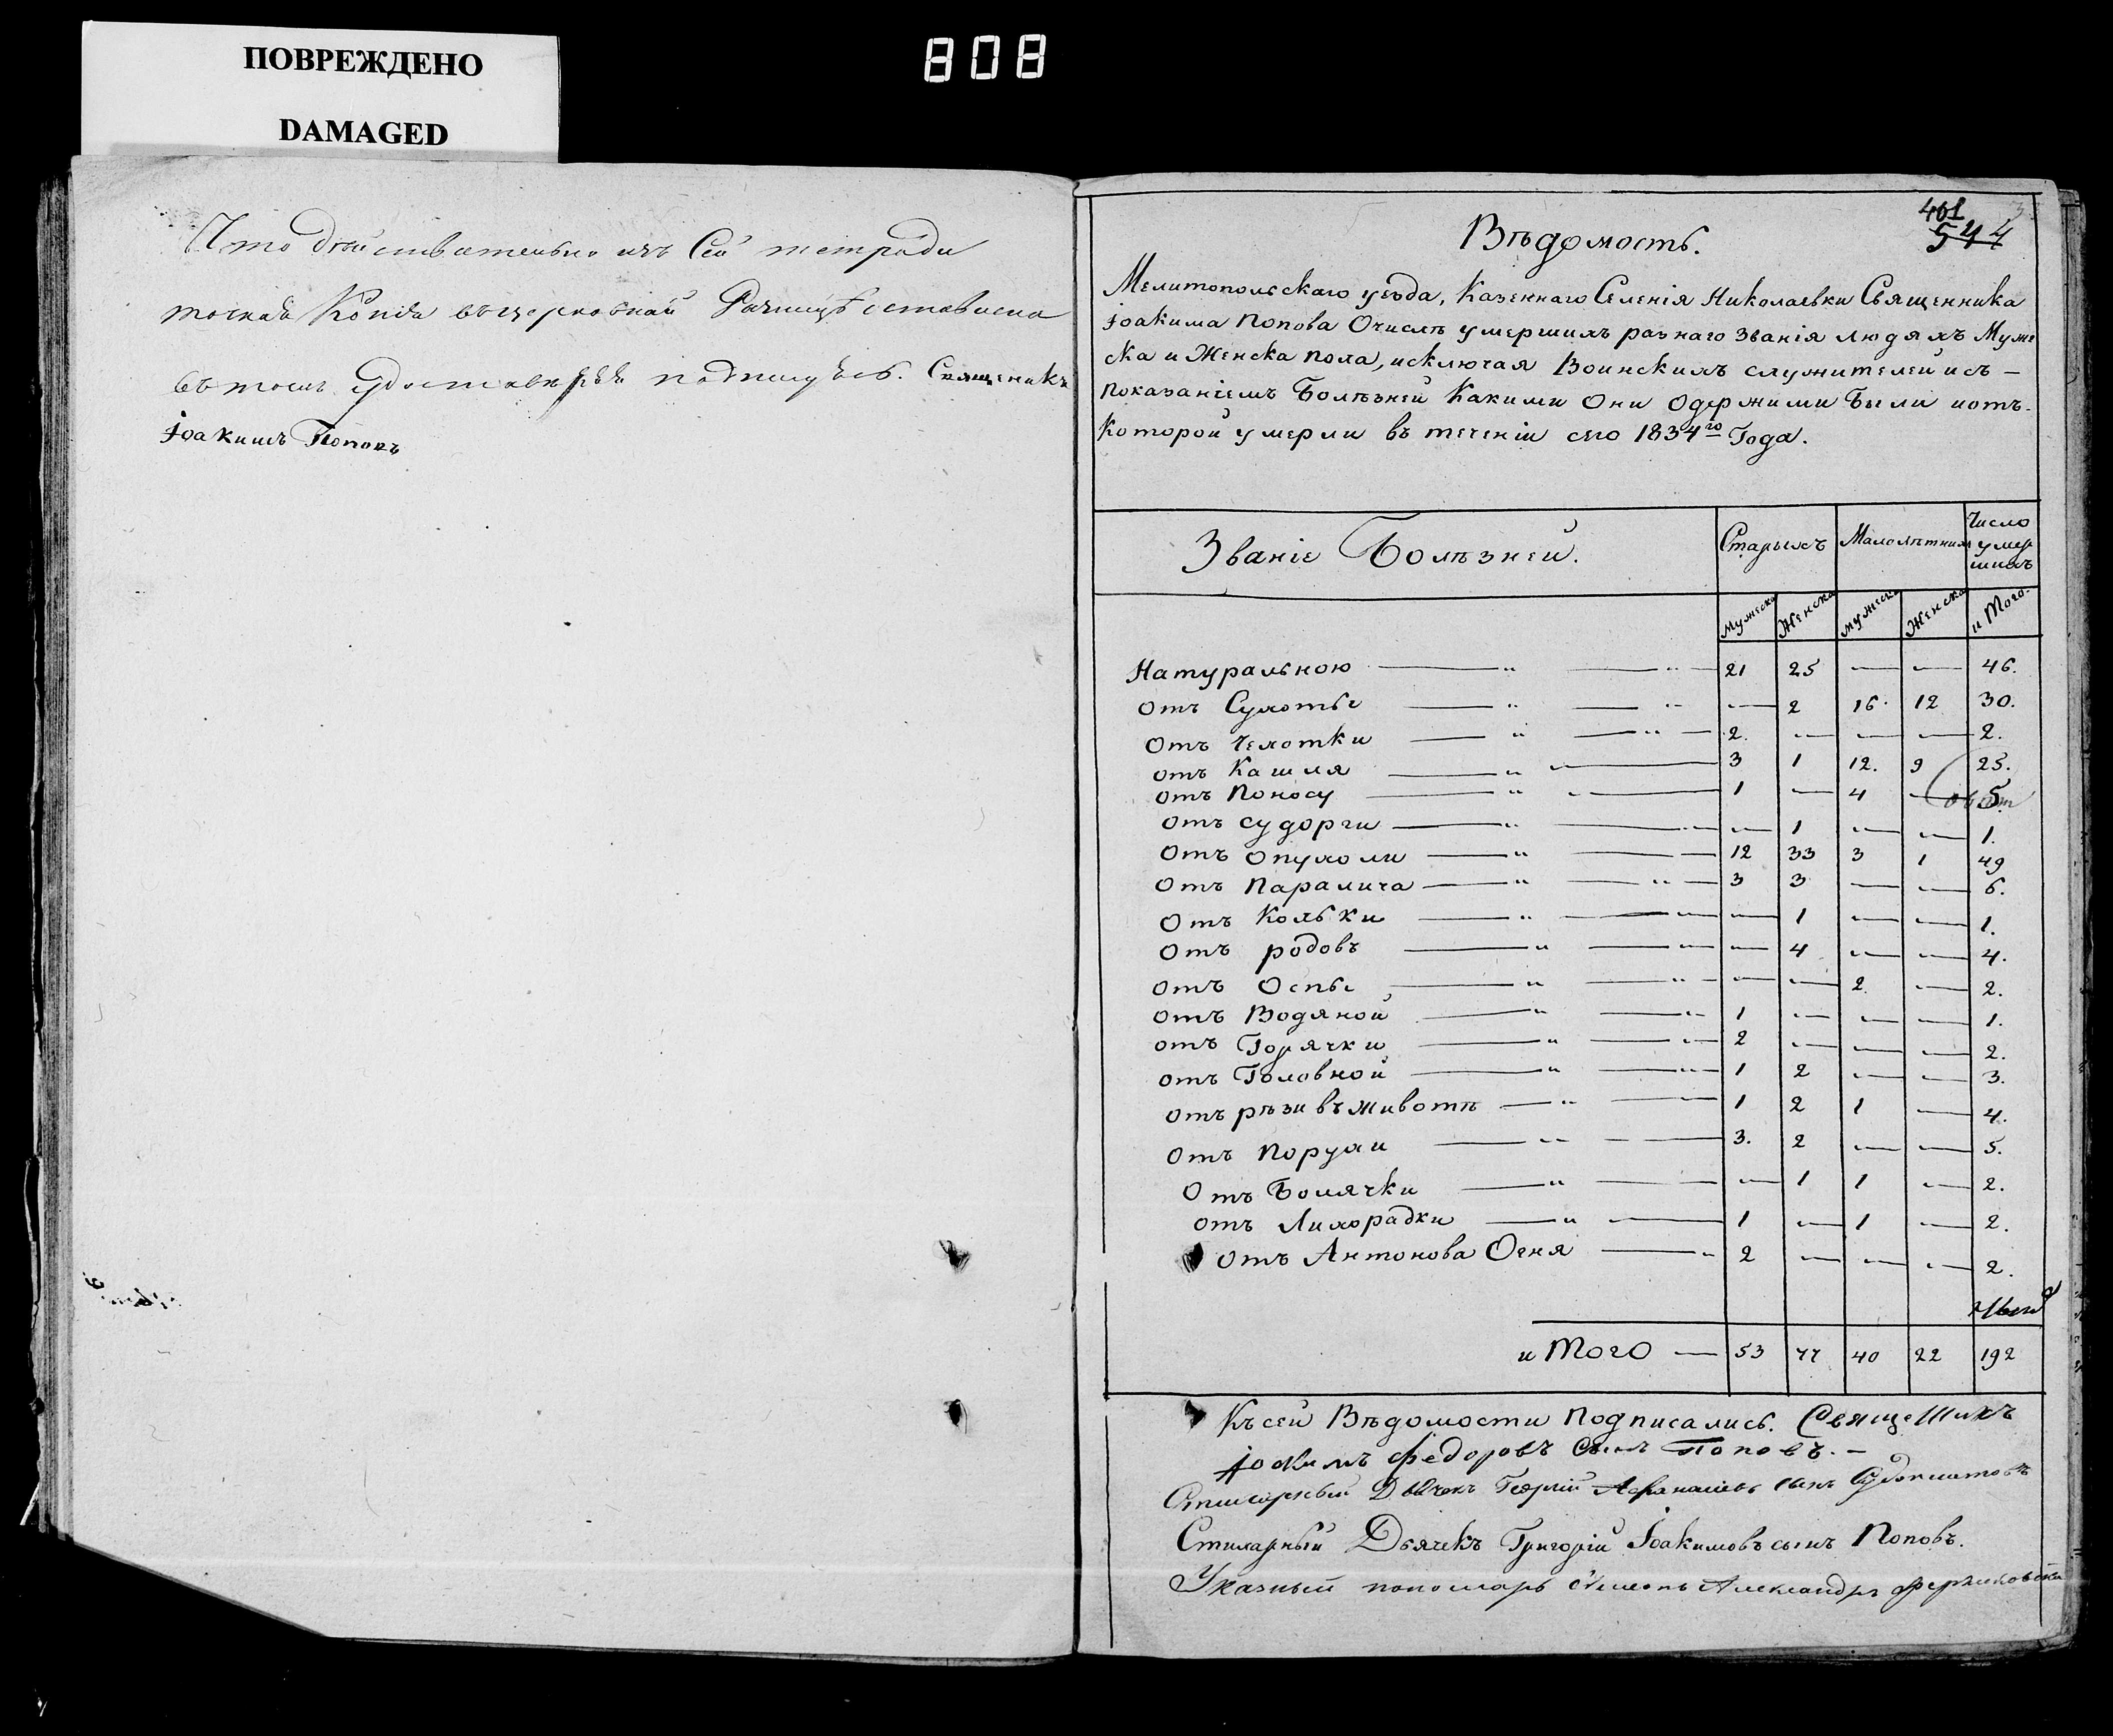 ПОВРЕЖДЕНО
DAMAGED
808
Что действительно изъ Сей тетради
точная Копія въ церковной Ризницѣ оставлена
въ томъ удостовѣряя подпишусь. Священникъ
Іоакимъ Поповъ
401
544
Вѣдомость.
Мелитопольскаго уезда, Казеннаго Селенія Николаевки Священника
Іоакима Попова Очислѣ умершихъ разнаго званія людяхъ Муже
ска и Женска пола, исключая Воинскихъ служителей исъ —
показаніемъ Болѣзней Какими Они Одержими Были иотъ-
Которой умерли въ теченіи сего 1834го Года.
Званіе Болѣзней. Старыхъ Малолѣтнихъ Число умер шихъ
Мужеска Женска мужеска Женска и Того.
Натуральною — „ — „ — 21 25 — — 46.
отъ Сухоты — „ — „ — 2 16. 12 30.
отъ Чехотки — „ — „ — 2. — — — 2.
отъ Кашля — „ — 3 1 12. 9 25.
отъ Поносу — „ — 1 — 4 — 5.
отъ судорги — „ — — 1 — — 1.
отъ опухоли — „ — 12 33 3 1 49
отъ Паралича — „ — „ — 3 3 — — 6.
отъ Кольки — „ — — 1 — — 1.
отъ родовъ — „ — — 4 — — 4.
отъ Оспы — „ — „ — — — 2. — 2.
отъ Водяной — „ — „ 1 — — — 1.
отъ Горячки — „ — 2 — — — 2.
отъ Головной — „ — 1 2 — — 3.
отъ рѣзи въ животѣ — „ — 1 2 1 — 4.
отъ Порухи — „ — 3. 2 — — 5.
отъ Болячки — „ — — 1 1 — 2.
отъ Лихорадки — „ — 1 — 1 — 2.
отъ Антонова Огня — „ 2 — — — 2.
и Того — 53 77 40 22 192
Къ сей Вѣдомости Подписались. Священникъ
Іоакимъ Федоровъ Сынъ Поповъ. —
Стихарный Дьячекъ Георгій Афанасіевъ сынъ
Стихарный Дьячекъ Григорій Іоакимовъ сынъ Поповъ.
Указный пономарь Симеонъ Александръ